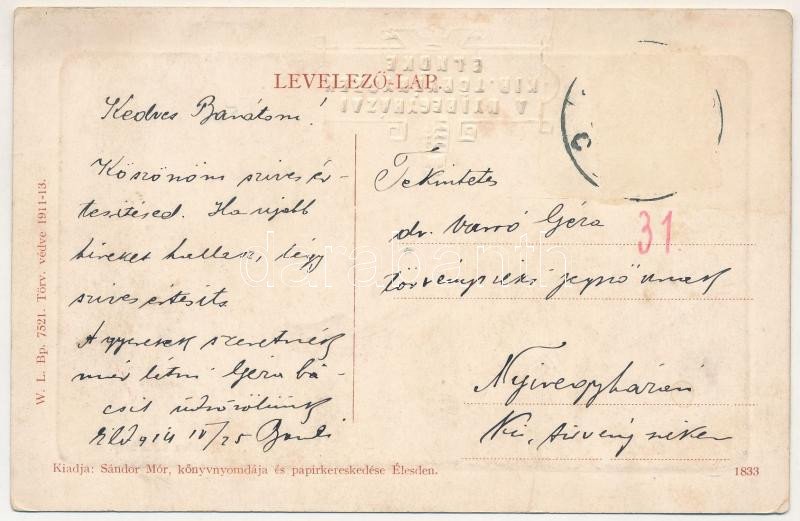 LEVELEZŐ-LAP
A NYÍREGYHÁZAI
KIR. TÖRVÉNYSZÉK
ELNÖKE
Kedves Barátom!
Köszönöm szives ér-
tesitésed. Ha ujabb
hireket hallasz, légy
szives értesits
A gyerekek szeretnék
már látni Géza bá-
csit üdvözölünk
914 IV/25
Tekintetes
dr. Géza
törvényszéki jegyző urnak
31
Nyiregyházán
Kir. törvényszék
W. L. Bp. 7521. Törv. védve 1911-13.
Kiadja: Sándor Mór, könyvnyomdája és papirkereskedése Élesden.
1833
darabanth